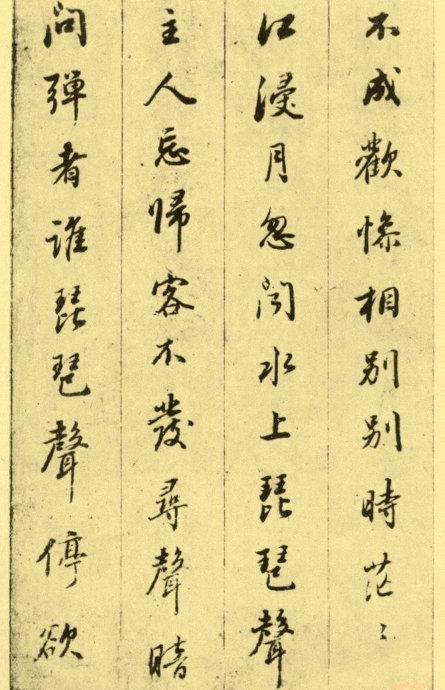 不成歡惨相別別時茫〻
江浸月忽聞水上琵琶聲
主人忘歸客不發尋聲暗
問弾者誰琵琶聲停欲